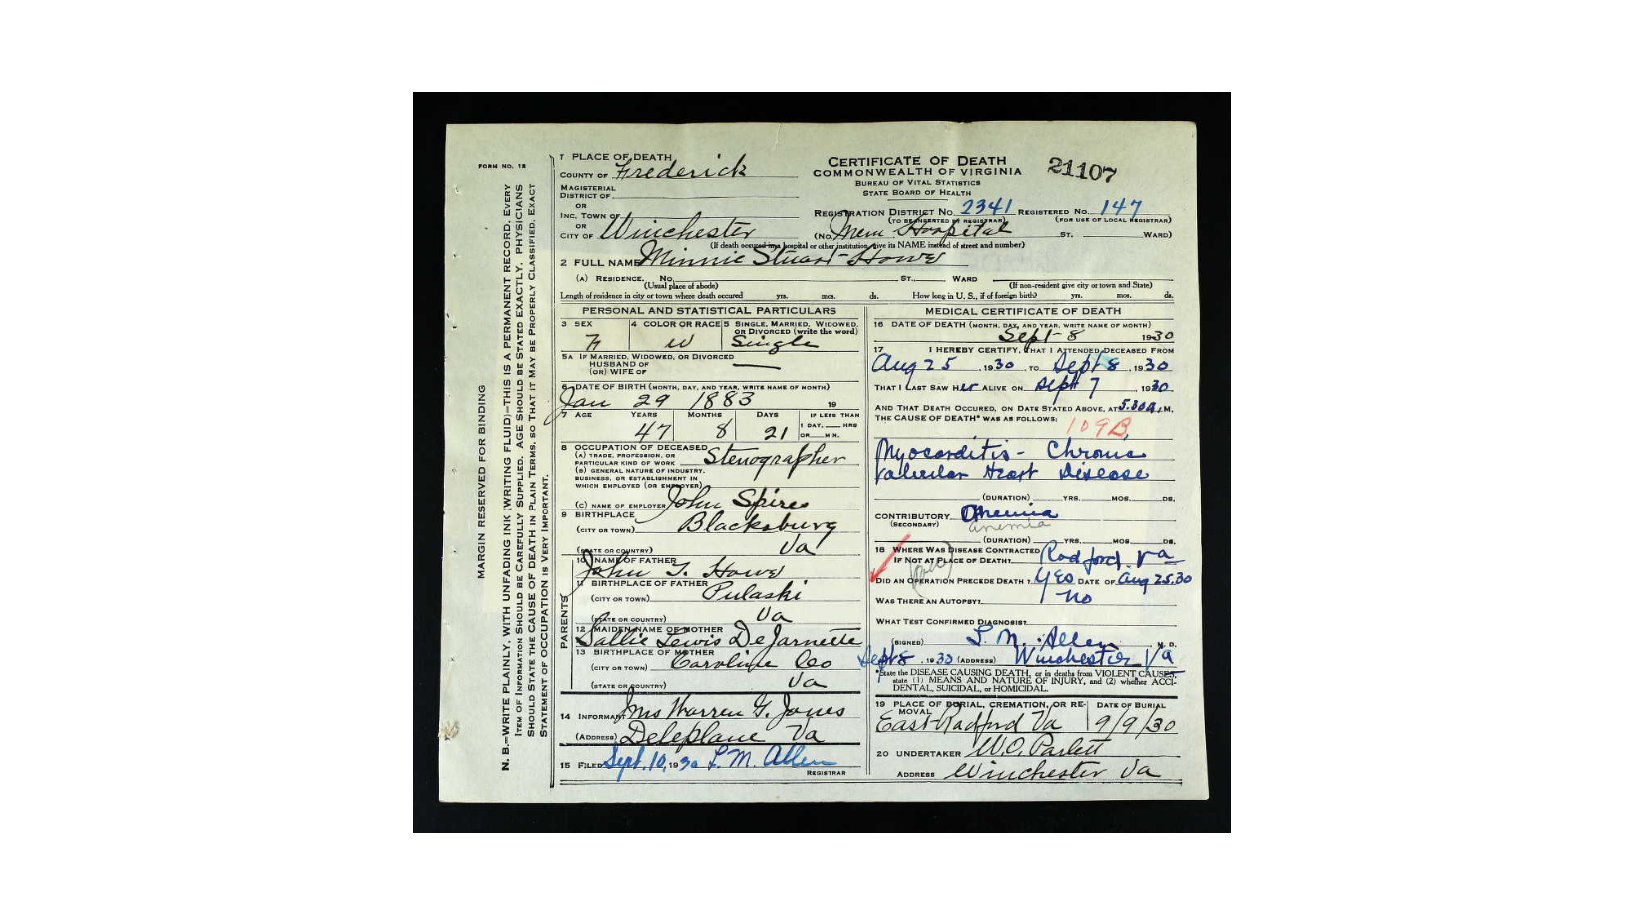 FORM NO. 18
MARGIN RESERVED FOR BINDING
N. B.—WRITE PLAINLY, WITH UNFADING INK (WRITING FLUID)—THIS IS A PERMANENT RECORD. EVERY
ITEM OF INFORMATION SHOULD BE CAREFULLY SUPPLIED. AGE SHOULD BE STATED EXACTLY. PHYSICIANS
SHOULD STATE THE CAUSE OF DEATH IN PLAIN TERMS, SO THAT IT MAY BE PROPERLY CLASSIFIED. EXACT
STATEMENT OF OCCUPATION IS VERY IMPORTANT.
1 PLACE OF DEATH
COUNTY OF Frederick
MAGISTERIAL
DISTRICT OF
OR
INC. TOWN OF
OR
CITY OF Winchester
CERTIFICATE OF DEATH
COMMONWEALTH OF VIRGINIA
BUREAU OF VITAL STATISTICS
STATE BOARD OF HEALTH
21107
REGISTRATION DISTRICT NO. 2341 REGISTERED NO. 147
(TO BE INSERTED BY REGISTRAR) (FOR USE OF LOCAL REGISTRAR)
(No. Mem Hospital ST. WARD)
(If death occured in a hospital or other institution, give its NAME instead of street and number)
2 FULL NAME Minnie Stuart Howe
(A) RESIDENCE. No. ST., WARD
(Usual place of abode) (If non-resident give city or town and State)
Length of residence in city or town where death occured yrs. mos. ds. How long in U. S., if of foreign birth? yrs. mos. ds.
PERSONAL AND STATISTICAL PARTICULARS
3 SEX 4 COLOR OR RACE 5 SINGLE, MARRIED, WIDOWED,
OR DIVORCED (write the word)
F W Single
5A IF MARRIED, WIDOWED, OR DIVORCED
HUSBAND OF
(OR) WIFE OF
6 DATE OF BIRTH (MONTH, DAY, AND YEAR, WRITE NAME OF MONTH)
Jan 29 1883 19
7 AGE YEARS MONTHS DAYS IF LESS THAN
1 DAY, HRS
OR MN.
47 8 21
8 OCCUPATION OF DECEASED
(A) TRADE, PROFESSION, OR
PARTICULAR KIND OF WORK Stenographer
(B) GENERAL NATURE OF INDUSTRY,
BUSINESS, OR ESTABLISHMENT IN
WHICH EMPLOYED (OR EMPLOYER)
(C) NAME OF EMPLOYER John Spires
9 BIRTHPLACE
(CITY OR TOWN) Blacksburg
(STATE OR COUNTRY) Va
PARENTS
10 NAME OF FATHER
John T. Howe
11 BIRTHPLACE OF FATHER
(CITY OR TOWN) Pulaski
(STATE OR COUNTRY) Va
12 MAIDEN NAME OF MOTHER
Sallie Lewis DeJarnette
13 BIRTHPLACE OF MOTHER
(CITY OR TOWN) Caroline Co
(STATE OR COUNTRY) Va
14 INFORMANT Mrs Warren G. Jones
(ADDRESS) Deleplane Va
15 FILED Sept. 10, 1930 L. M. Allen
REGISTRAR
MEDICAL CERTIFICATE OF DEATH
16 DATE OF DEATH (MONTH, DAY, AND YEAR, WRITE NAME OF MONTH)
Sept - 8 1930
17 I HEREBY CERTIFY, THAT I ATTENDED DECEASED FROM
Aug 25, 1930, TO Sept 8, 1930
THAT I LAST SAW Her ALIVE ON Sept 7, 1930
AND THAT DEATH OCCURED, ON DATE STATED ABOVE, AT 5.30A.M.
THE CAUSE OF DEATH* WAS AS FOLLOWS:
109B,
Myocarditis - Chronic
Valvular Heart Disease
(DURATION) YRS. MOS. DS.
CONTRIBUTORY Anemia
(SECONDARY) anemia
(DURATION) YRS. MOS. DS.
18 WHERE WAS DISEASE CONTRACTED
IF NOT AT PLACE OF DEATH? Radford, Va
DID AN OPERATION PRECEDE DEATH? Yes DATE OF Aug 25.30
WAS THERE AN AUTOPSY? No
WHAT TEST CONFIRMED DIAGNOSIS?
(SIGNED) L. M. Allen M. D.
Sept 8, 1930 (ADDRESS) Winchester Va
*State the DISEASE CAUSING DEATH, or in deaths from VIOLENT CAUSES,
state (1) MEANS AND NATURE OF INJURY, and (2) whether ACCI-
DENTAL, SUICIDAL, or HOMICIDAL.
19 PLACE OF BURIAL, CREMATION, OR RE-
MOVAL DATE OF BURIAL
East Radford Va 9/9/30
20 UNDERTAKER W.O. Parlett
ADDRESS Winchester Va